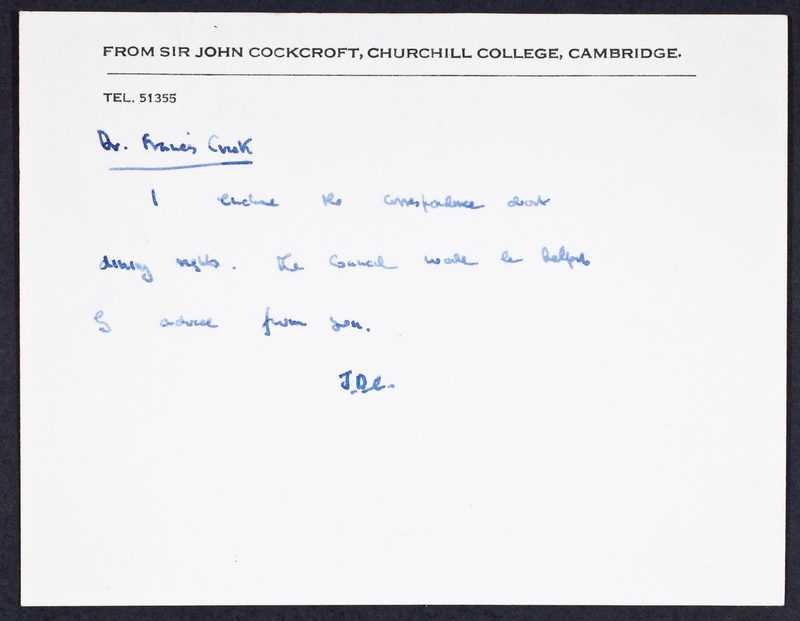 FROM SIR JOHN COCKCROFT, CHURCHILL COLLEGE, CAMBRIDGE.
TEL. 51355
Dr. Francis Crick
I enclose the correspondence about
dining rights. The Council would be helped
by advice from you.
J.D.C.